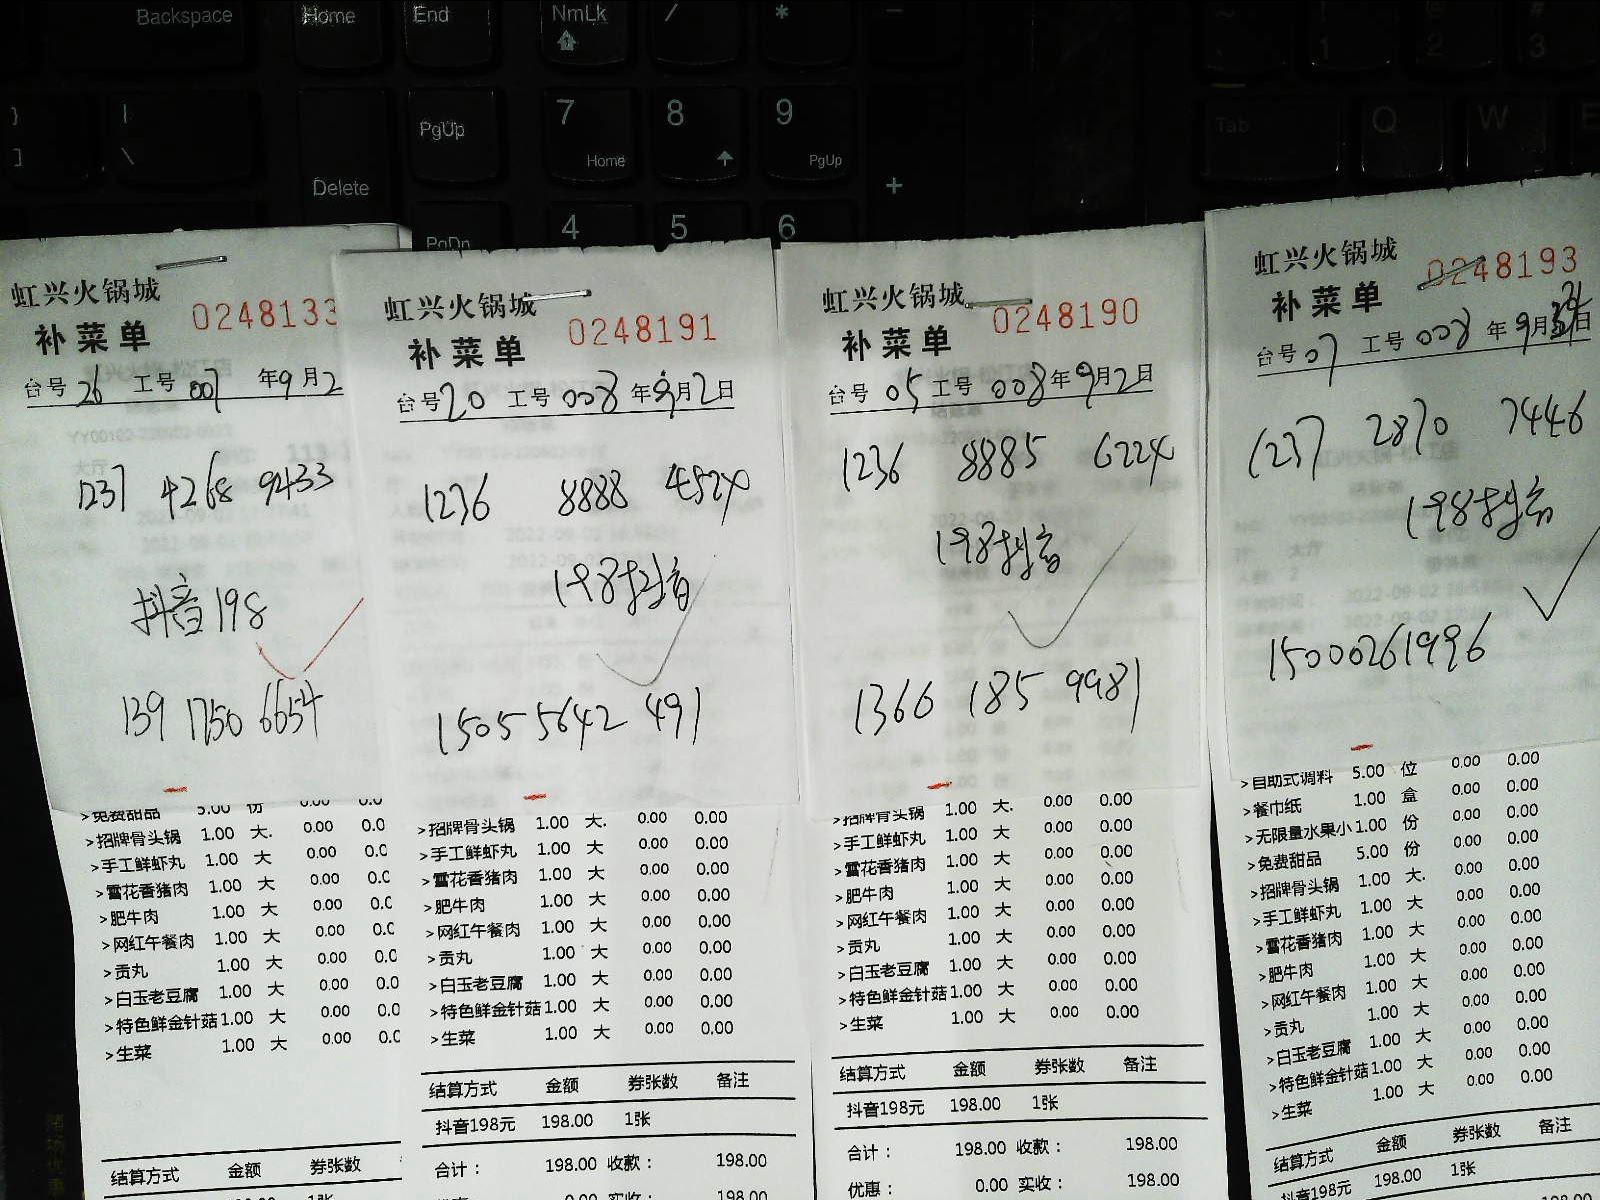 Backspace
Home
End
NmLk
/
*
-
}
]
|
\
Delete
PgUp
7
Home
8
9
PgUp
+
PgDn
4
5
6
1
2
3
Tab
Q
W
E
虹兴火锅城
补菜单
0248133
台号 26 工号 007 年9月2
1237 4268 9433
抖音198
139 1750 6654
>免费甜品 5.00 份 0.00 0.0
>招牌骨头锅 1.00 大. 0.00 0.0
>手工鲜虾丸 1.00 大 0.00 0.0
>雪花香猪肉 1.00 大 0.00 0.0
>肥牛肉 1.00 大 0.00 0.0
>网红午餐肉 1.00 大 0.00 0.0
>贡丸 1.00 大 0.00 0.0
>白玉老豆腐 1.00 大 0.00 0.0
>特色鲜金针菇 1.00 大 0.00 0.0
>生菜 1.00 大 0.00 0.0
结算方式 金额 券张数
虹兴火锅城
补菜单
0248191
台号 20 工号 008 年9月2日
1236 8888 4524
198抖音
1505 5642 491
>招牌骨头锅 1.00 大. 0.00 0.00
>手工鲜虾丸 1.00 大 0.00 0.00
>雪花香猪肉 1.00 大 0.00 0.00
>肥牛肉 1.00 大 0.00 0.00
>网红午餐肉 1.00 大 0.00 0.00
>贡丸 1.00 大 0.00 0.00
>白玉老豆腐 1.00 大 0.00 0.00
>特色鲜金针菇 1.00 大 0.00 0.00
>生菜 1.00 大 0.00 0.00
结算方式 金额 券张数 备注
抖音198元 198.00 1张
合计： 198.00 收款： 198.00
0.00 实收： 198.00
虹兴火锅城
补菜单
0248190
台号 05 工号 008 年9月2日
1236 8885 6224
198抖音
1366 185 9981
>招牌骨头锅 1.00 大. 0.00 0.00
>手工鲜虾丸 1.00 大 0.00 0.00
>雪花香猪肉 1.00 大 0.00 0.00
>肥牛肉 1.00 大 0.00 0.00
>网红午餐肉 1.00 大 0.00 0.00
>贡丸 1.00 大 0.00 0.00
>白玉老豆腐 1.00 大 0.00 0.00
>特色鲜金针菇 1.00 大 0.00 0.00
>生菜 1.00 大 0.00 0.00
结算方式 金额 券张数 备注
抖音198元 198.00 1张
合计： 198.00 收款： 198.00
优惠： 0.00 实收： 198.00
虹兴火锅城
补菜单
0248193
台号 07 工号 008 年9月 日
1237 2870 7446
198抖音
15000261996
>自助式调料 5.00 位 0.00 0.00
>餐巾纸 1.00 盒 0.00 0.00
>无限量水果小 1.00 份 0.00 0.00
>免费甜品 5.00 份 0.00 0.00
>招牌骨头锅 1.00 大. 0.00 0.00
>手工鲜虾丸 1.00 大 0.00 0.00
>雪花香猪肉 1.00 大 0.00 0.00
>肥牛肉 1.00 大 0.00 0.00
>网红午餐肉 1.00 大 0.00 0.00
>贡丸 1.00 大 0.00 0.00
>白玉老豆腐 1.00 大 0.00 0.00
>特色鲜金针菇 1.00 大 0.00 0.00
>生菜 1.00 大 0.00 0.00
结算方式 金额 券张数 备注
抖音198元 198.00 1张